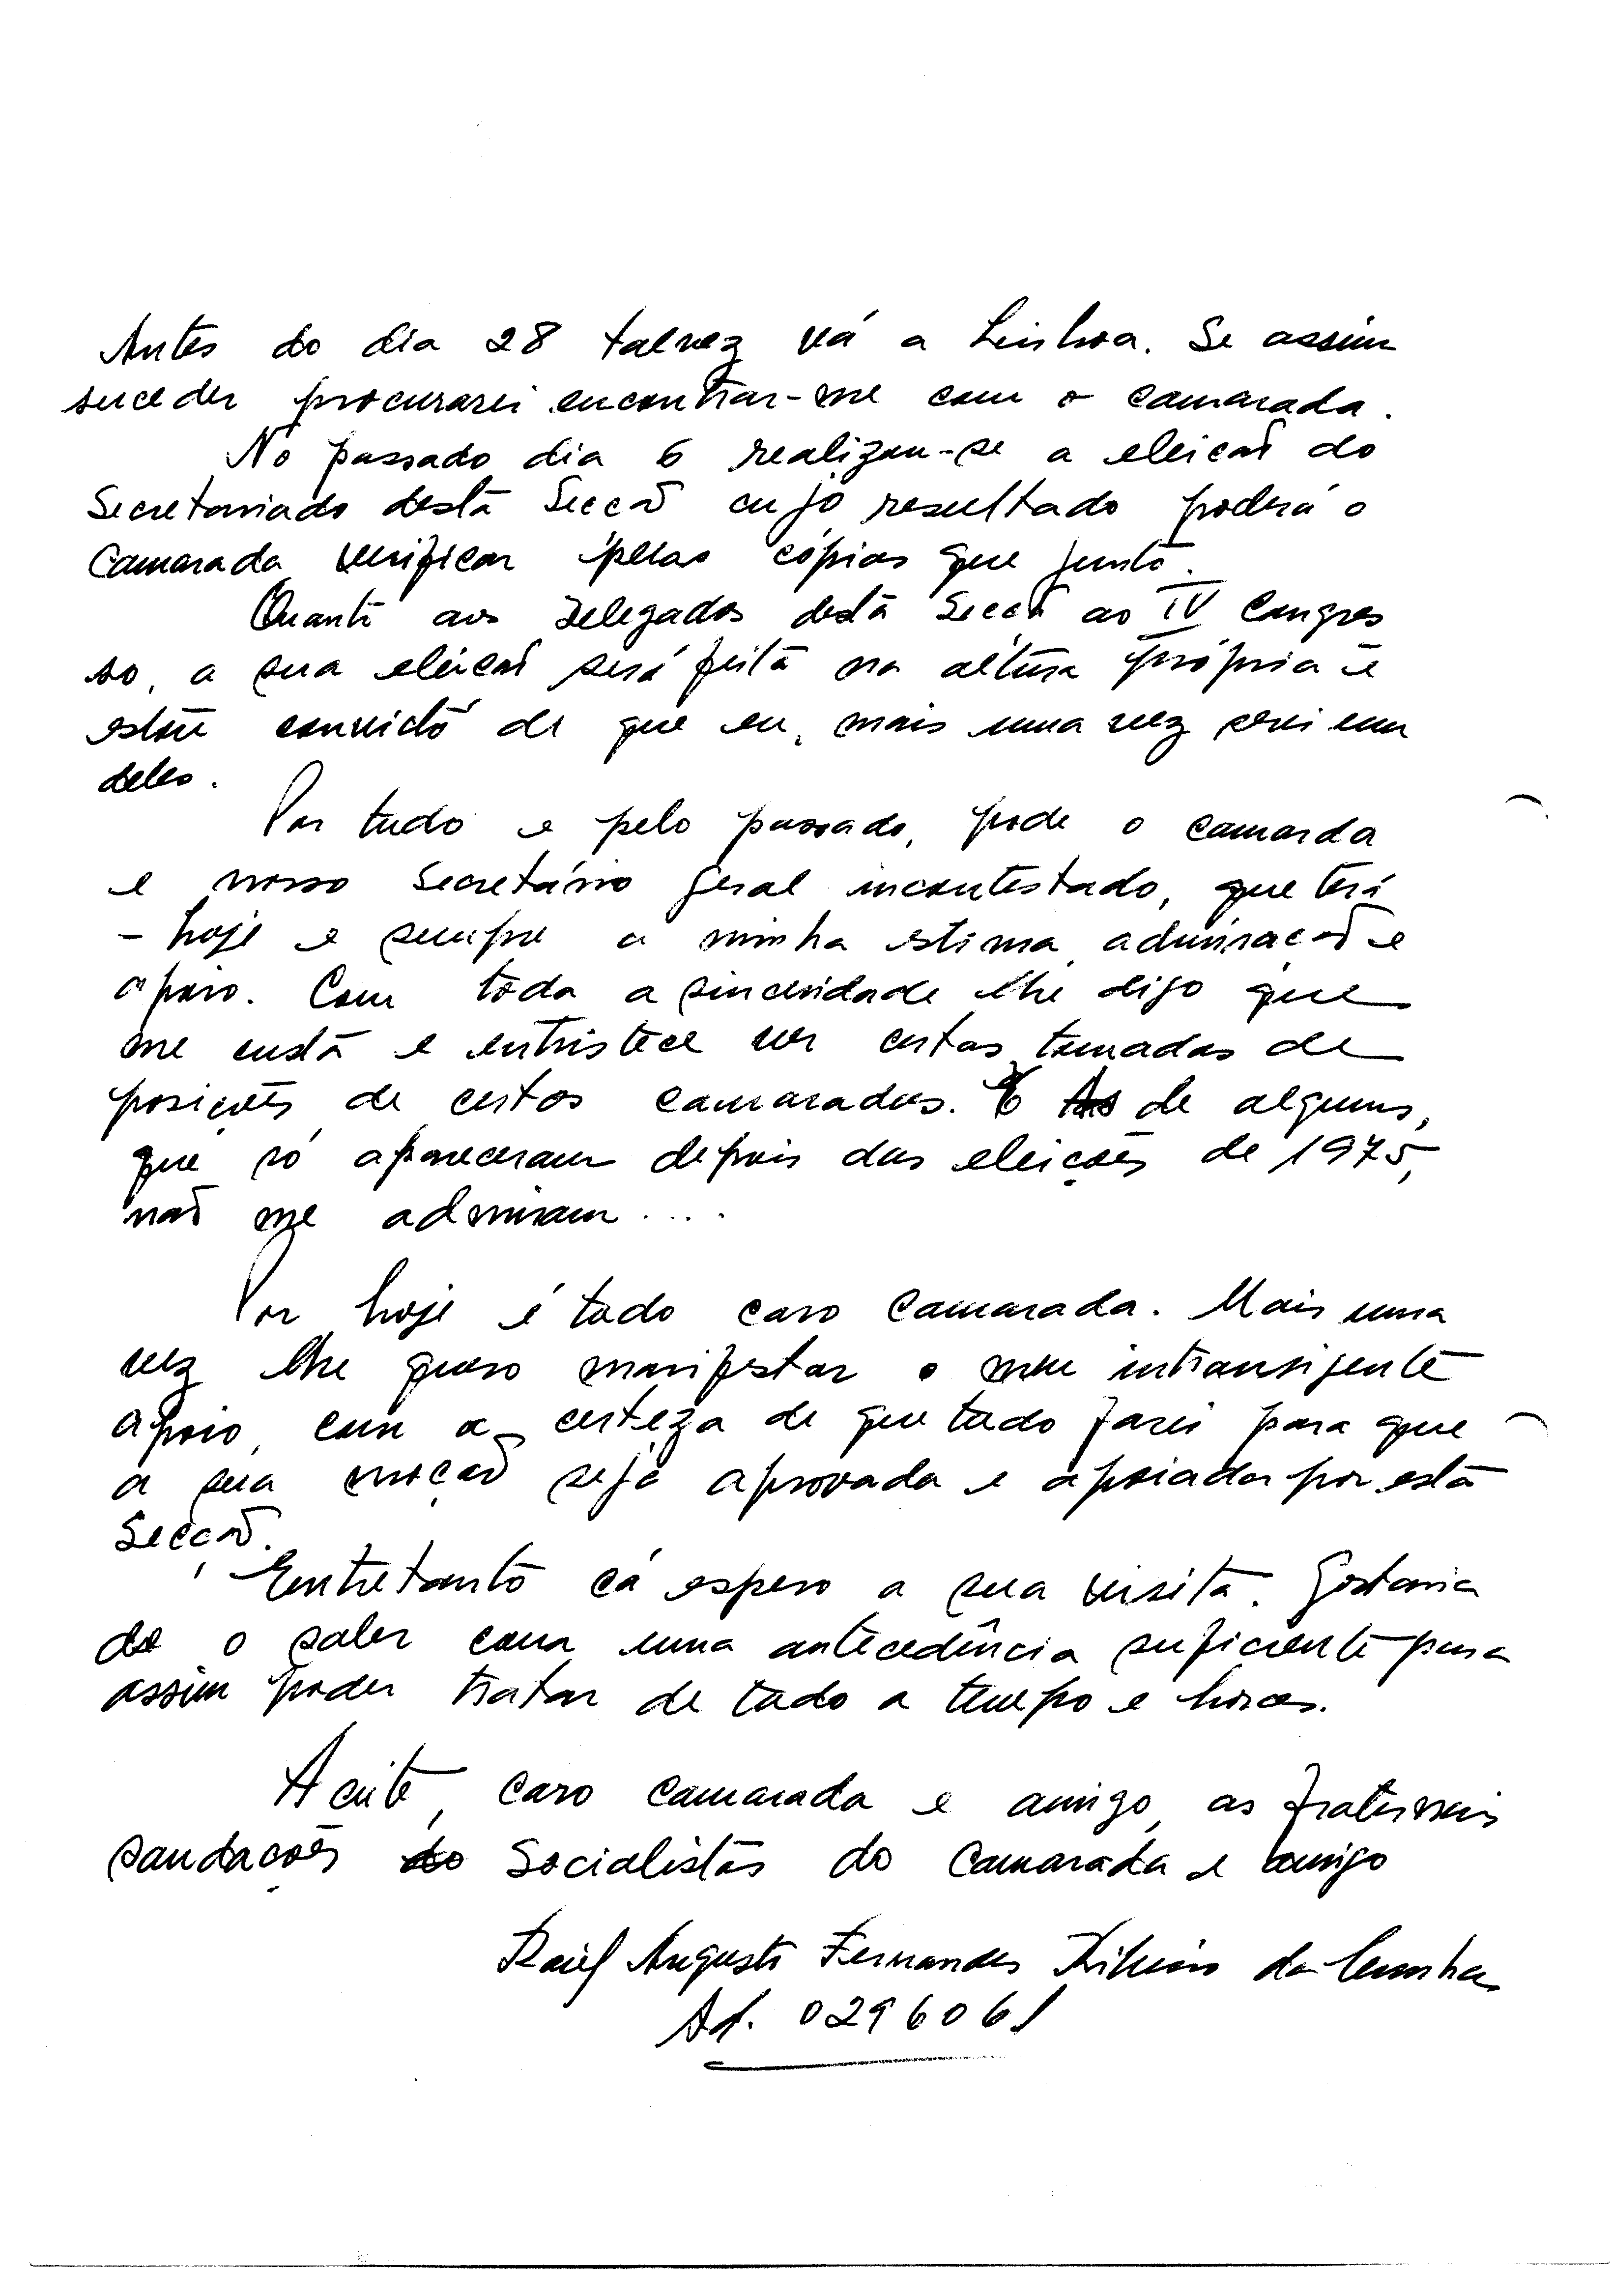 Antes do dia 28 talvez vá a Lisboa. Se assim
suceder procurarei encontrar-me com o camarada.
No passado dia 6 realizou-se a eleição do
Secretariado desta Secção cujo resultado poderá o
Camarada verificar pelas cópias que junto.
Quanto aos Delegados desta Secção ao IV Congres
so, a sua eleição será feita na altura própria e
estou convicto de que eu, mais uma vez serei um
deles.
Por tudo e pelo passado, pode o camarda
e nosso Secretário Geral incontestado, que terá
- hoje e sempre a minha estima, admiração e
apoio. Com toda a sinceridade lhe digo que
me custa e entristece ver certas tomadas de
posições de certos camaradas. E de alguns,
que só apareceram depois das eleições de 1975,
não me admiram ....
Por hoje é tudo caro Camarada. Mais uma
vez lhe quero manifestar o meu intransigente
apoio, com a certeza de que tudo farei para que
a sua moção seja aprovada e apoiada por esta
Secção.
Entretanto cá espero a sua visita. Gostaria
de o saber com uma antecedência suficiente para
assim poder tratar de tudo a tempo e horas.
Aceite, caro camarada e amigo, as fraternais
saudações Socialistas do Camarada e amigo
Raúl Augusto Fernandes Ribeiro da Cunha
Ad. 0296061